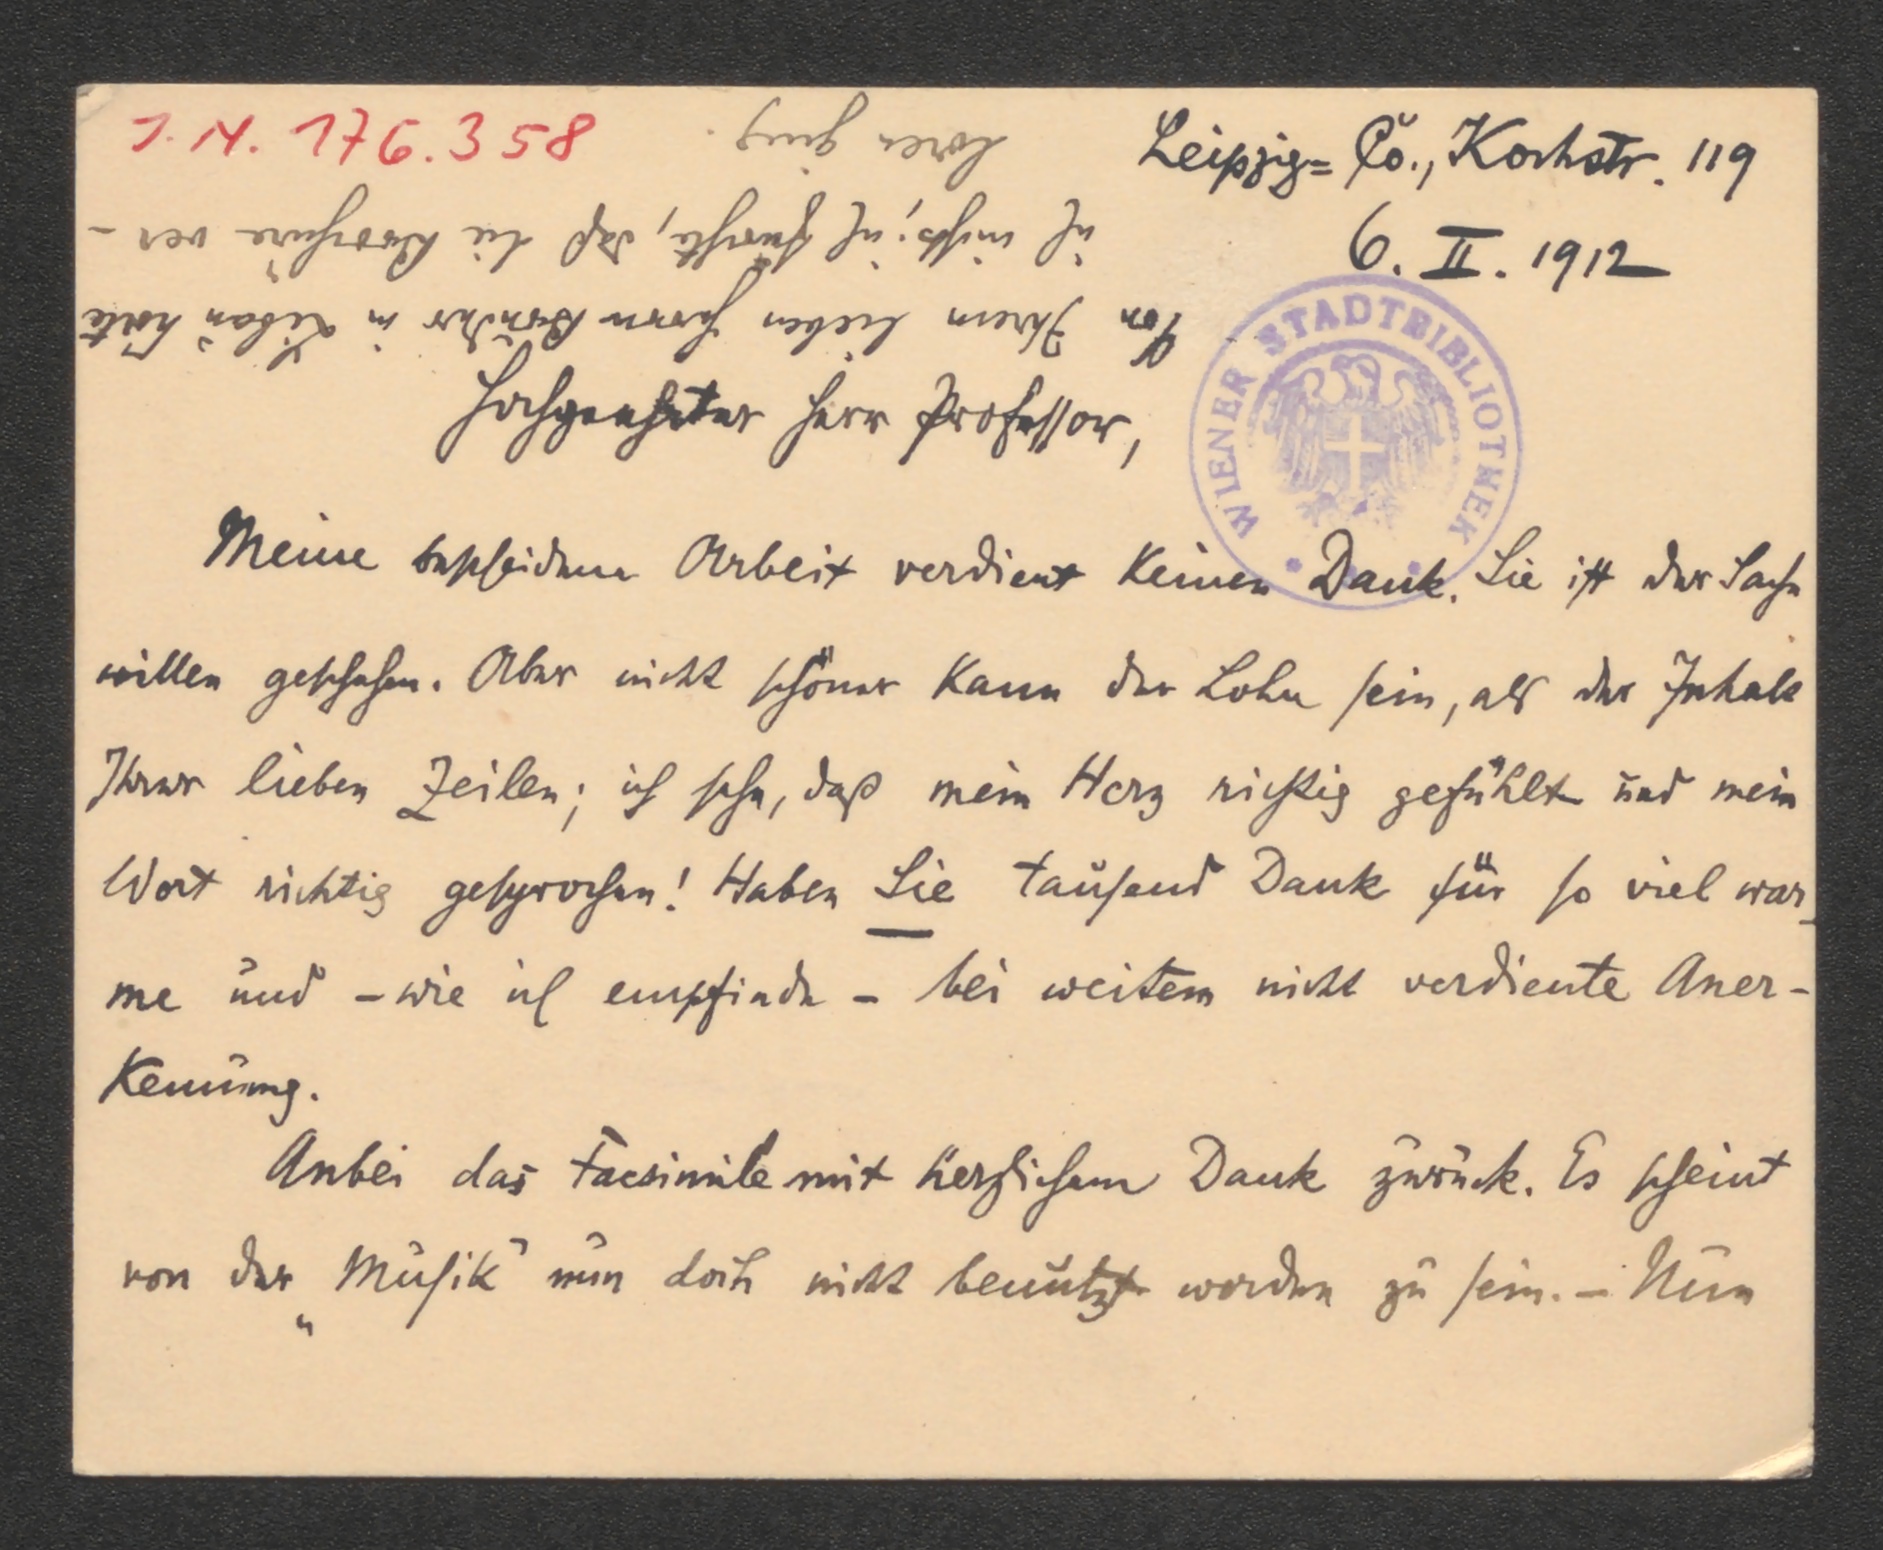 I. N. 176.358
Leipzig=Cö., Kochstr. 119
6. II. 1912
WIENER STADTBIBLIOTHEK
Hochgeehrter Herr Professor,
Meine bescheidene Arbeit verdient keinen Dank. Sie ist der Sache
willen geschehen. Aber nicht schöner kann der Lohn sein, als der Inhalt
Ihrer lieben Zeilen; ich sehe, daß mein Herz richtig gefühlt und mein
Wort richtig gesprochen! Haben Sie tausend Dank für so viel war-
me und – wie ich empfinde – bei weitem nicht verdiente Aner-
kennung.
Anbei das Facsimile mit herzlichem Dank zurück. Es scheint
von der „Musik" nun doch nicht benützt worden zu sein. – Nun
Von Ihrem lieben Herrn Bruder in Libau hörte
ich nichts; ich fürchte, daß die Broschüre ver-
loren ging.